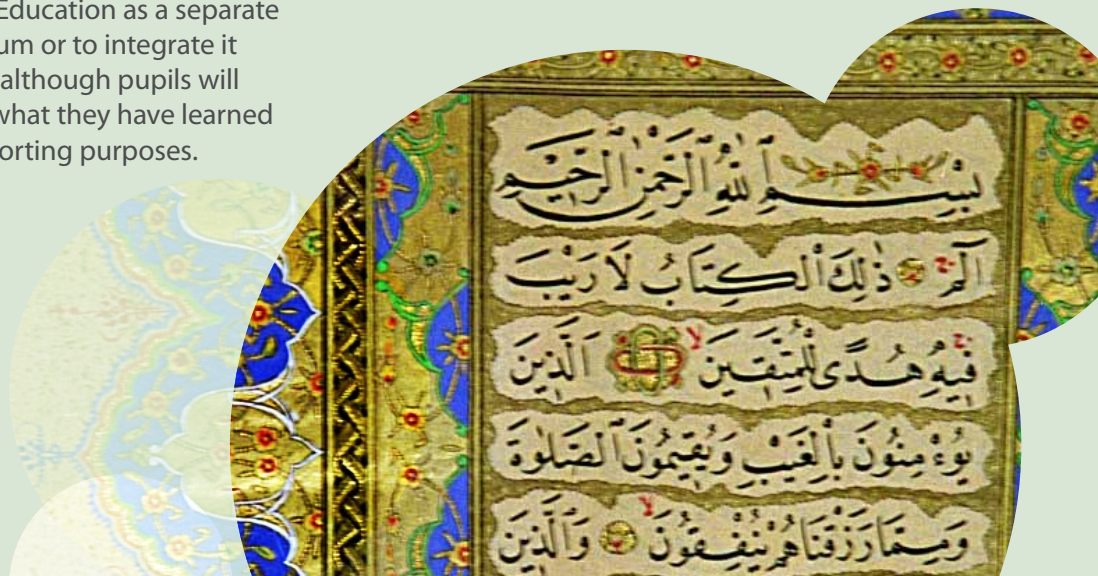 Education as a separate
um or to integrate it
although pupils will
what they have learned
orting purposes.
بِسْمِ ٱللّٰهِ ٱلرَّحْمٰنِ ٱلرَّحِيمِ
الٓمٓ ج ذٰلِكَ ٱلْكِتَابُ لَا رَيْبَ
فِيهِ ج هُدًى لِلْمُتَّقِينَ لا اَلَّذِينَ
يُؤْمِنُونَ بِالْغَيْبِ وَيُقِيمُونَ ٱلصَّلٰوةَ
وَمِمَّا رَزَقْنَاهُمْ يُنْفِقُونَ لا وَٱلَّذِينَ